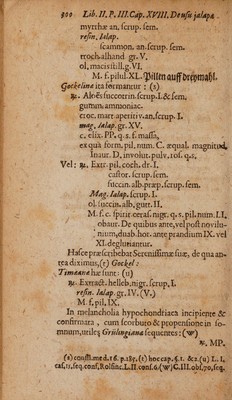 900 Lib. II. P. III. Cap. XVIII. De usu jalapæ
myrrhæ an. scrup. sem.
resin. Ialap.
scammon. an. scrup. sem.
troch. alhand gr. V.
ol, macis still. g. VI.
M. f. pilul. XL. Pillen auff dreymahl.
Gockelinæ ita formantur : (s)
℞. Aloës succotrin. scrup. I. & sem.
gumm. ammoniac.
croc. mart. aperitiv. an. scrup. I.
mag. Ialap. gr. XV.
c. elix. PP. q. s. f. massa,
ex qua form. pil. num. C. æqual. magnitud.
Inaur. D. involut. pulv. ros. q. s.
Vel : ℞. Extr. pil. coch. dr. I.
castor. scrup. sem.
succin. alb. præp. scrup. sem.
Mag. Ialap. scrup. I.
ol. succin. alb. gutt. II.
M. f. c. spirit. ceras. nigr. q. s. pil. num. LI,
obaur. De quibus ante, vel post novilu-
nium, duab. hor. ante prandium IX. vel
XI. deglutiantur.
Hasce præscribebat Serenissimæ suæ, de qua an-
tea diximus, (t) Gockel :
Timæanæ hæ sunt : (u)
℞. Extract. helleb. nigr. scrup. I.
resin. Ialap. gr. IV. (V.)
M. f. pil. IX.
In melancholia hypochondriaca incipiente &
confirmata , cum scorbuto & propensione in fo-
mnium, utiles Grülingiana sequentes : (w)
℞. MP.
(s) consil. med. d. 6. p. 185. (t) hoc cap. §. 1. &2. (u) L. I.
cas. 11, seq. conf. Rolfinc. L. II conf. 6. (w) C. III. obs. 70, seq.